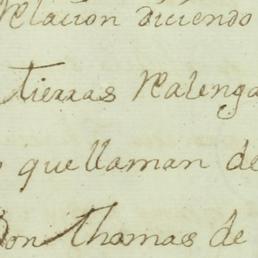 Relacion diciendo
tierras Realenga
que llaman de
Don Thomas de